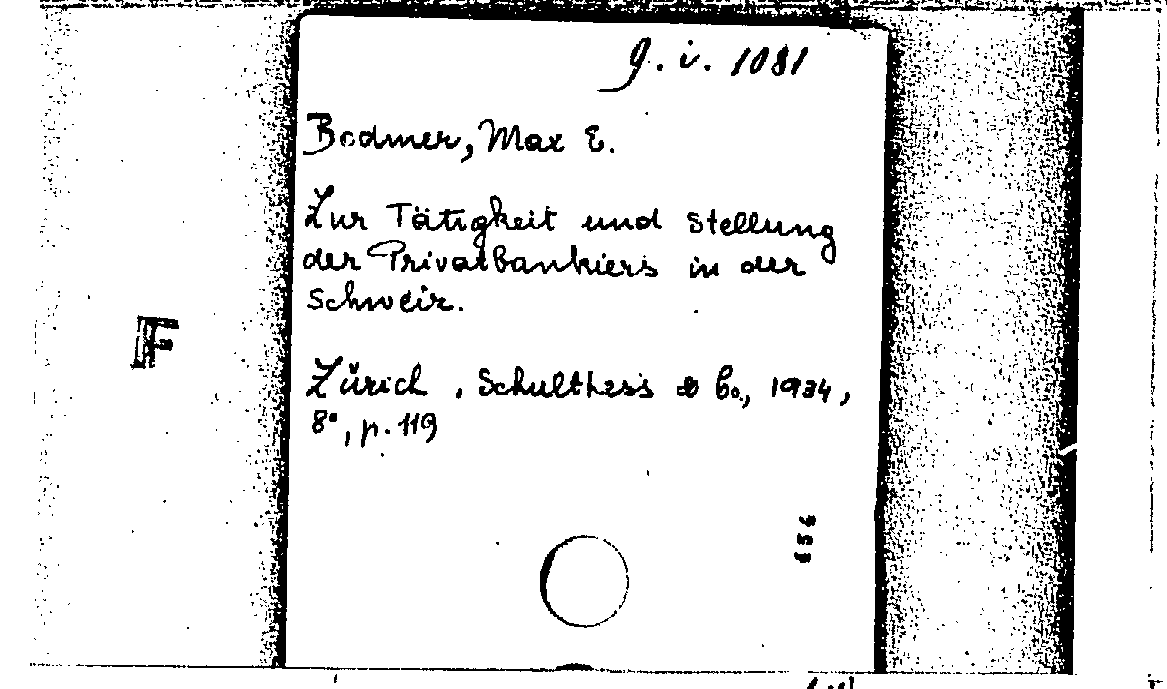 g. i. 1081
Bodmer, Max E.
Zur Tätigkeit und Stellung
der Privatbankiers in der
Schweiz.
F
Zürich, Schulthess & Co., 1934,
8°, p. 119